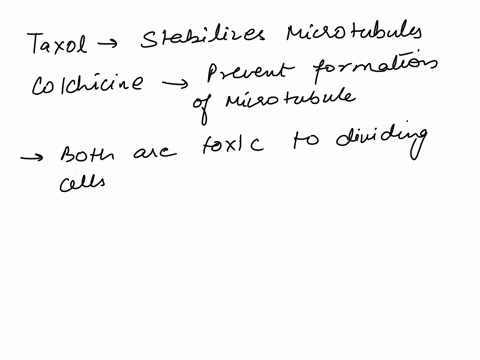 Taxol → Stabilizes Microtubules
Colchicine → Prevent formation
of Microtubule
→ Both are toxic to dividing
cells